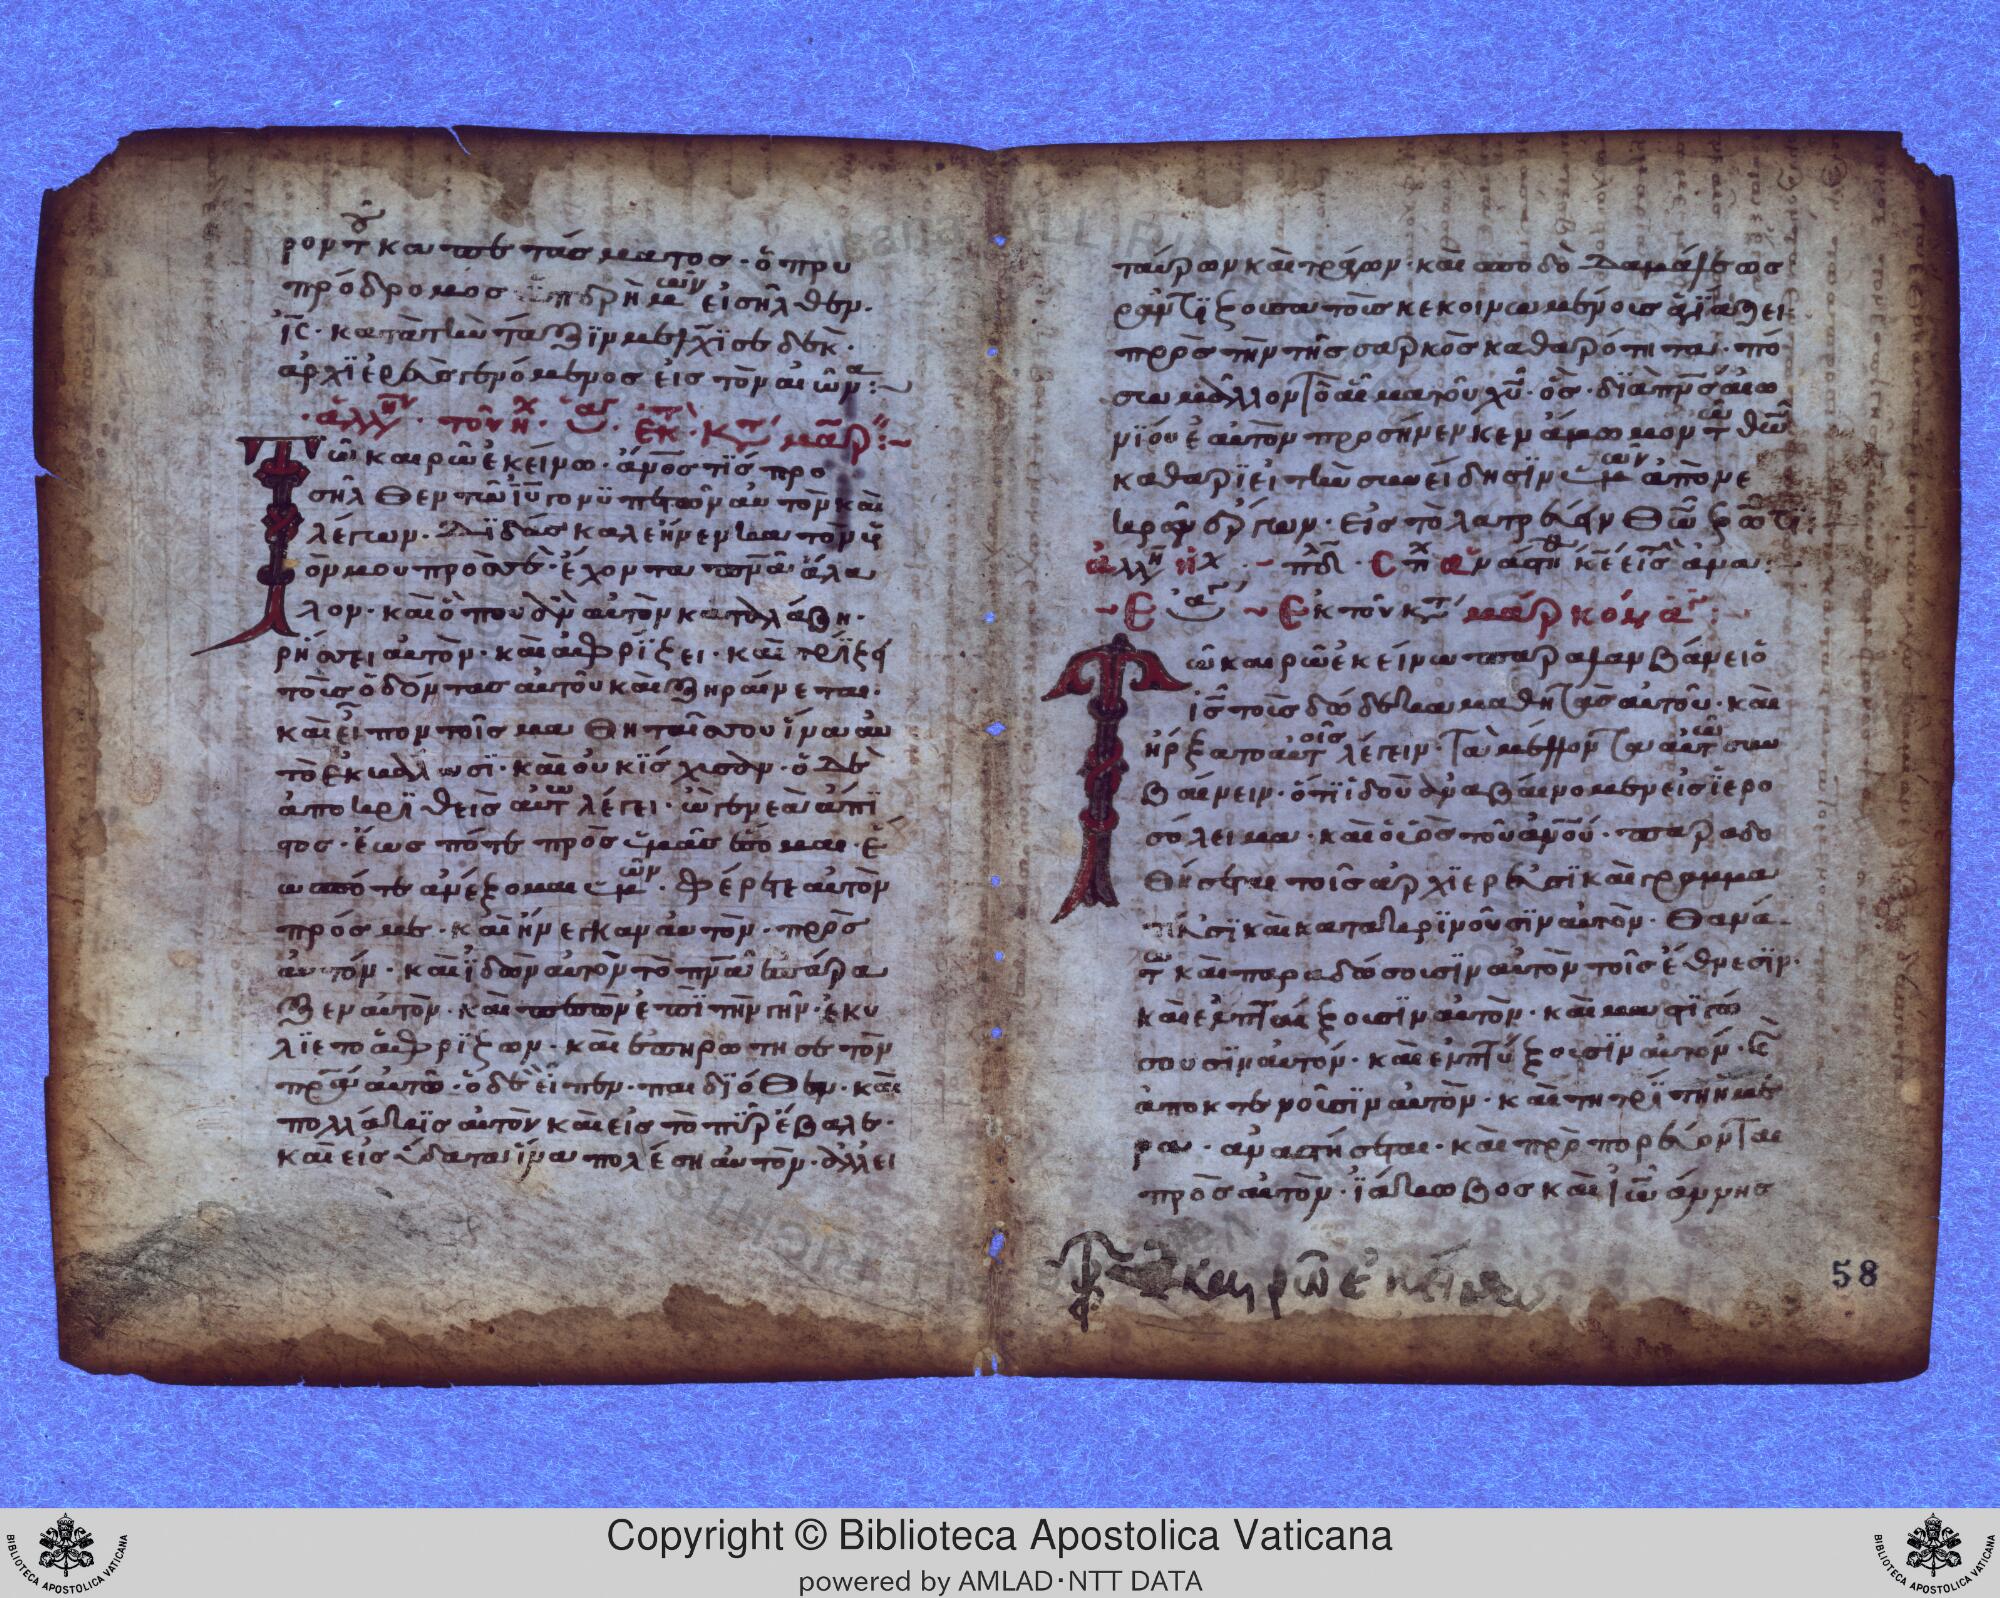 ρον τ(ου) καταπετάσματος · ὅπου
πρόδρομος ὑπὲρ ἡμῶν εἰσῆλθεν ·
ἰ̅ς̅ · κατὰ τὴν τάξϊν μελχϊσεδεκ ·
ἀρχϊερεὺς γενόμενος εἰς τὸν αἰῶνα :~
τῶ καιρῶ ἐκείνω · ἄ̅ν̅ο̅ς τϊς προ
σῆλθεν τῶ ἰ̅υ̅ γονϋπετῶν αὐτὸν καὶ
λέγων · Δϊδάσκαλε ἤνεγκα τὸν ϋ
ὸν μου πρὸς σὲ · ἔχοντα π̅ν̅α̅ ἄλα
λον · καὶ ὅπου ἂν αὐτὸν καταλάβη ·
ρήσσει αὐτὸν · καὶ ἀφρίζει · καὶ τρίζει
τοὺς ὀδόντας αὐτοῦ καὶ ξηραίνεται ·
καὶ εἶπον τοῖς μαθηταῖς σου ἵνα αὐ
τὸ ἐκβάλωσϊ · καὶ οὐκ ἴσχυσαν · ὁ Δὲ
ἀποκρϊθεὶς αὐτῶ λέγει · ὦ γενεὰ ἄπϊ
στος · ἕως πότε πρὸς ὑμᾶς ἔσομαι · ἕ
ως πότε ἀνέξομαι ὑμῶν · φέρετε αὐτὸν
πρός με · καὶ ἤνεγκαν αὐτὸν · πρὸς
αὐτόν · καὶ ἰδὼν αὐτὸν τὸ π̅ν̅α̅ ἐσπάρα
ξεν αὐτὸν · καὶ πεσὼν ἐπὶ τὴν γῆν · ἐκυ
λίετο ἀφρίζων · καὶ ἐπηρώτησε τὸν
π̅ρ̅α̅ αὐτοῦ · ὁ δὲ εἶπεν · παιδϊόθεν · καὶ
πολλάκϊς αὐτὸν καὶ εἰς τὸ πῦρ ἔβαλε ·
καὶ εἰς ὕδατα ἵνα ἀπολέση αὐτὸν · ἀλλ εἰ
ταύρων καὶ τράγων · καὶ σποδὸς Δαμάλεως
ραντίζουσα τοὺς κεκοινωμένους ἁγιάζει
πρὸς τὴν τῆς σαρκὸς καθαρότητα · πό
σω μᾶλλον τὸ αἷμα τοῦ χ̅υ̅ · ὃς · δϊὰ π̅ν̅ς̅ αἰω
νίου ἑαυτὸν προσήνεγκεν ἄμωμον τῶ θ̅ω̅
καθαρϊεῖ τὴν συνείδησϊν ὑμῶν ἀπὸ νε
κρῶν ἔργων · εἰς τὸ λατρεύειν Θ̅ω̅ ζῶντϊ :
~ Ἐκ τοῦ κατὰ μάρκον
τῶ καιρῶ ἐκείνω παραλαμβάνει ὁ
ἰ̅ς̅ τοὺς δώδεκα μαθητὰς αὐτοῦ · καὶ
ἤρξατο αὐτοῖς λέγειν · τὰ μέλλοντα αὐτῶ συμ
βαίνειν · ὅτϊ ἰδοὺ ἀναβαίνομεν εἰς ἱερο
σόλειμα · καὶ ὁ υἱὸς τοῦ ἀ̅ν̅ο̅υ̅ · παραδο
θήσεται τοῖς ἀρχϊερεῦσϊ καὶ γραμμα
τεῦσϊ καὶ κατακρϊνοῦσϊν αὐτὸν · θανά
τω καὶ παραδώσουσϊν αὐτὸν τοῖς ἔθνεσϊν ·
καὶ ἐμπαίξουσϊν αὐτὸν · καὶ μαστϊγώ
σουσϊν αὐτόν · καὶ ἐμπτύξουσϊν αὐτόν · καὶ
ἀποκτενοῦσϊν αὐτὸν · καὶ τῆ τρίτη ἡμέ
ρα · ἀναστήσεται · καὶ προπορεύονται
πρὸς αὐτὸν · ϊάκωβος καὶ ἰωάννης
τῶ καιρῶ ἐκείνω
58
Copyright © Biblioteca Apostolica Vaticana
powered by AMLAD·NTT DATA
BIBLIOTECA APOSTOLICA VATICANA
BIBLIOTECA APOSTOLICA VATICANA